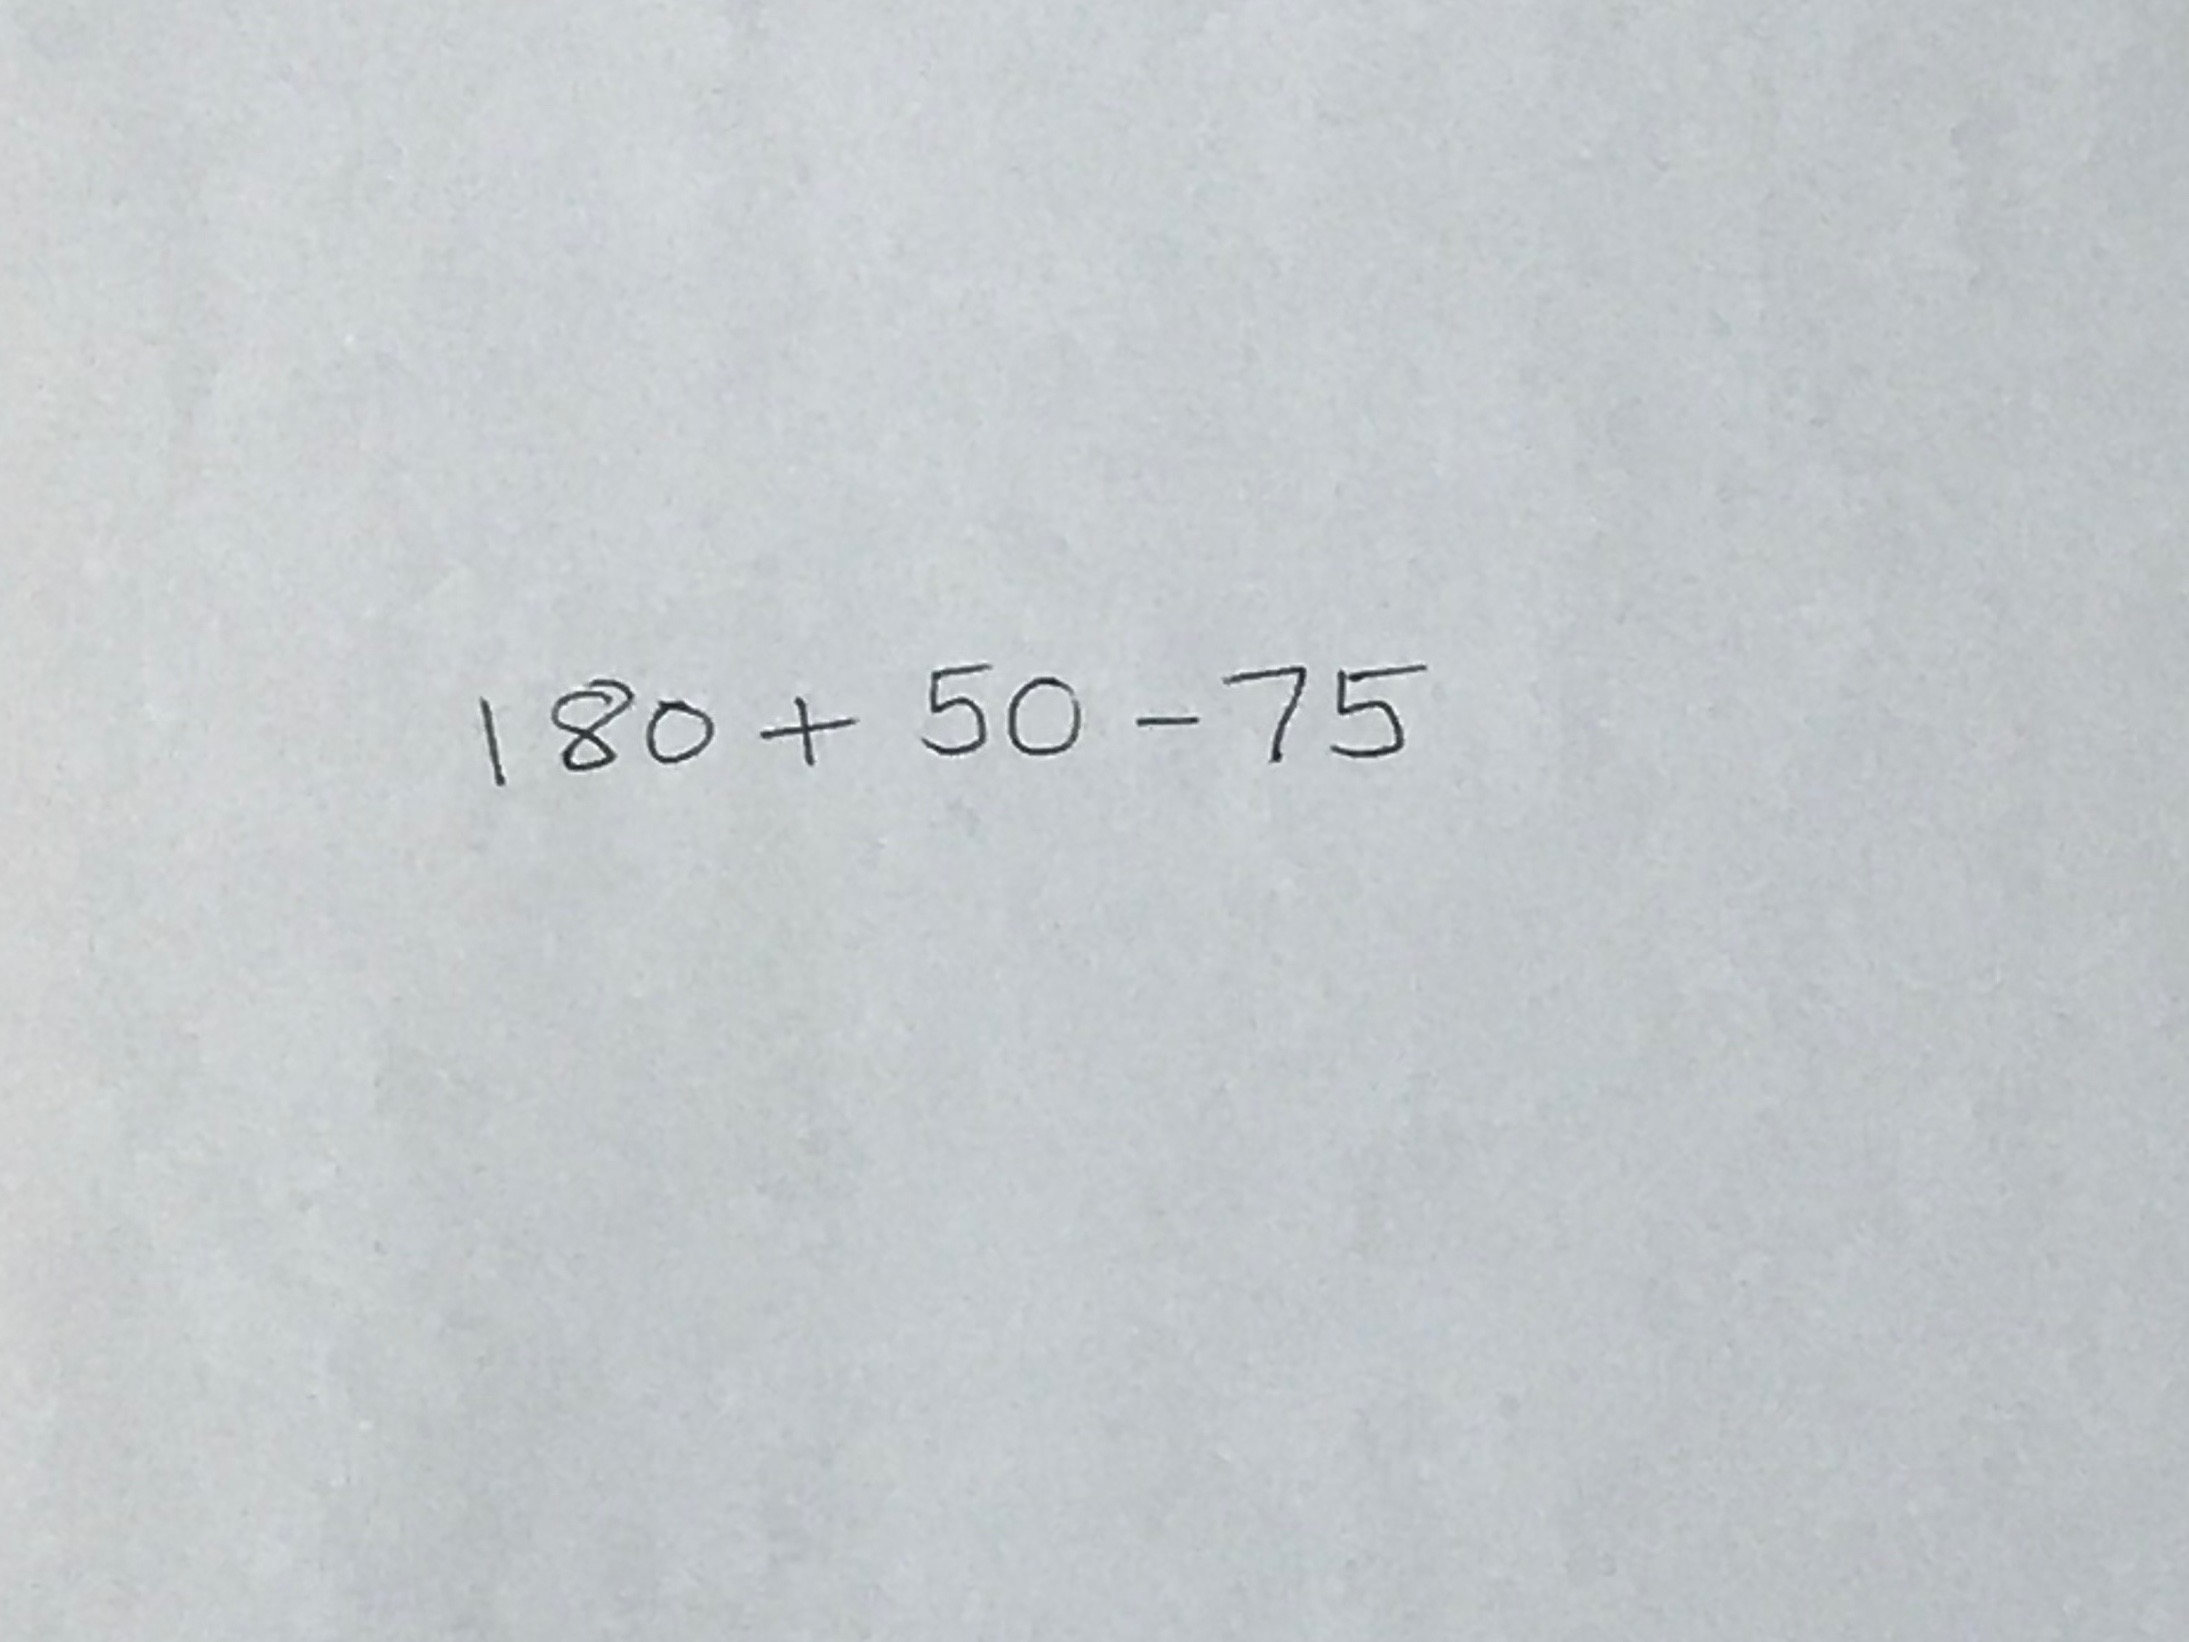 180 + 50 - 75